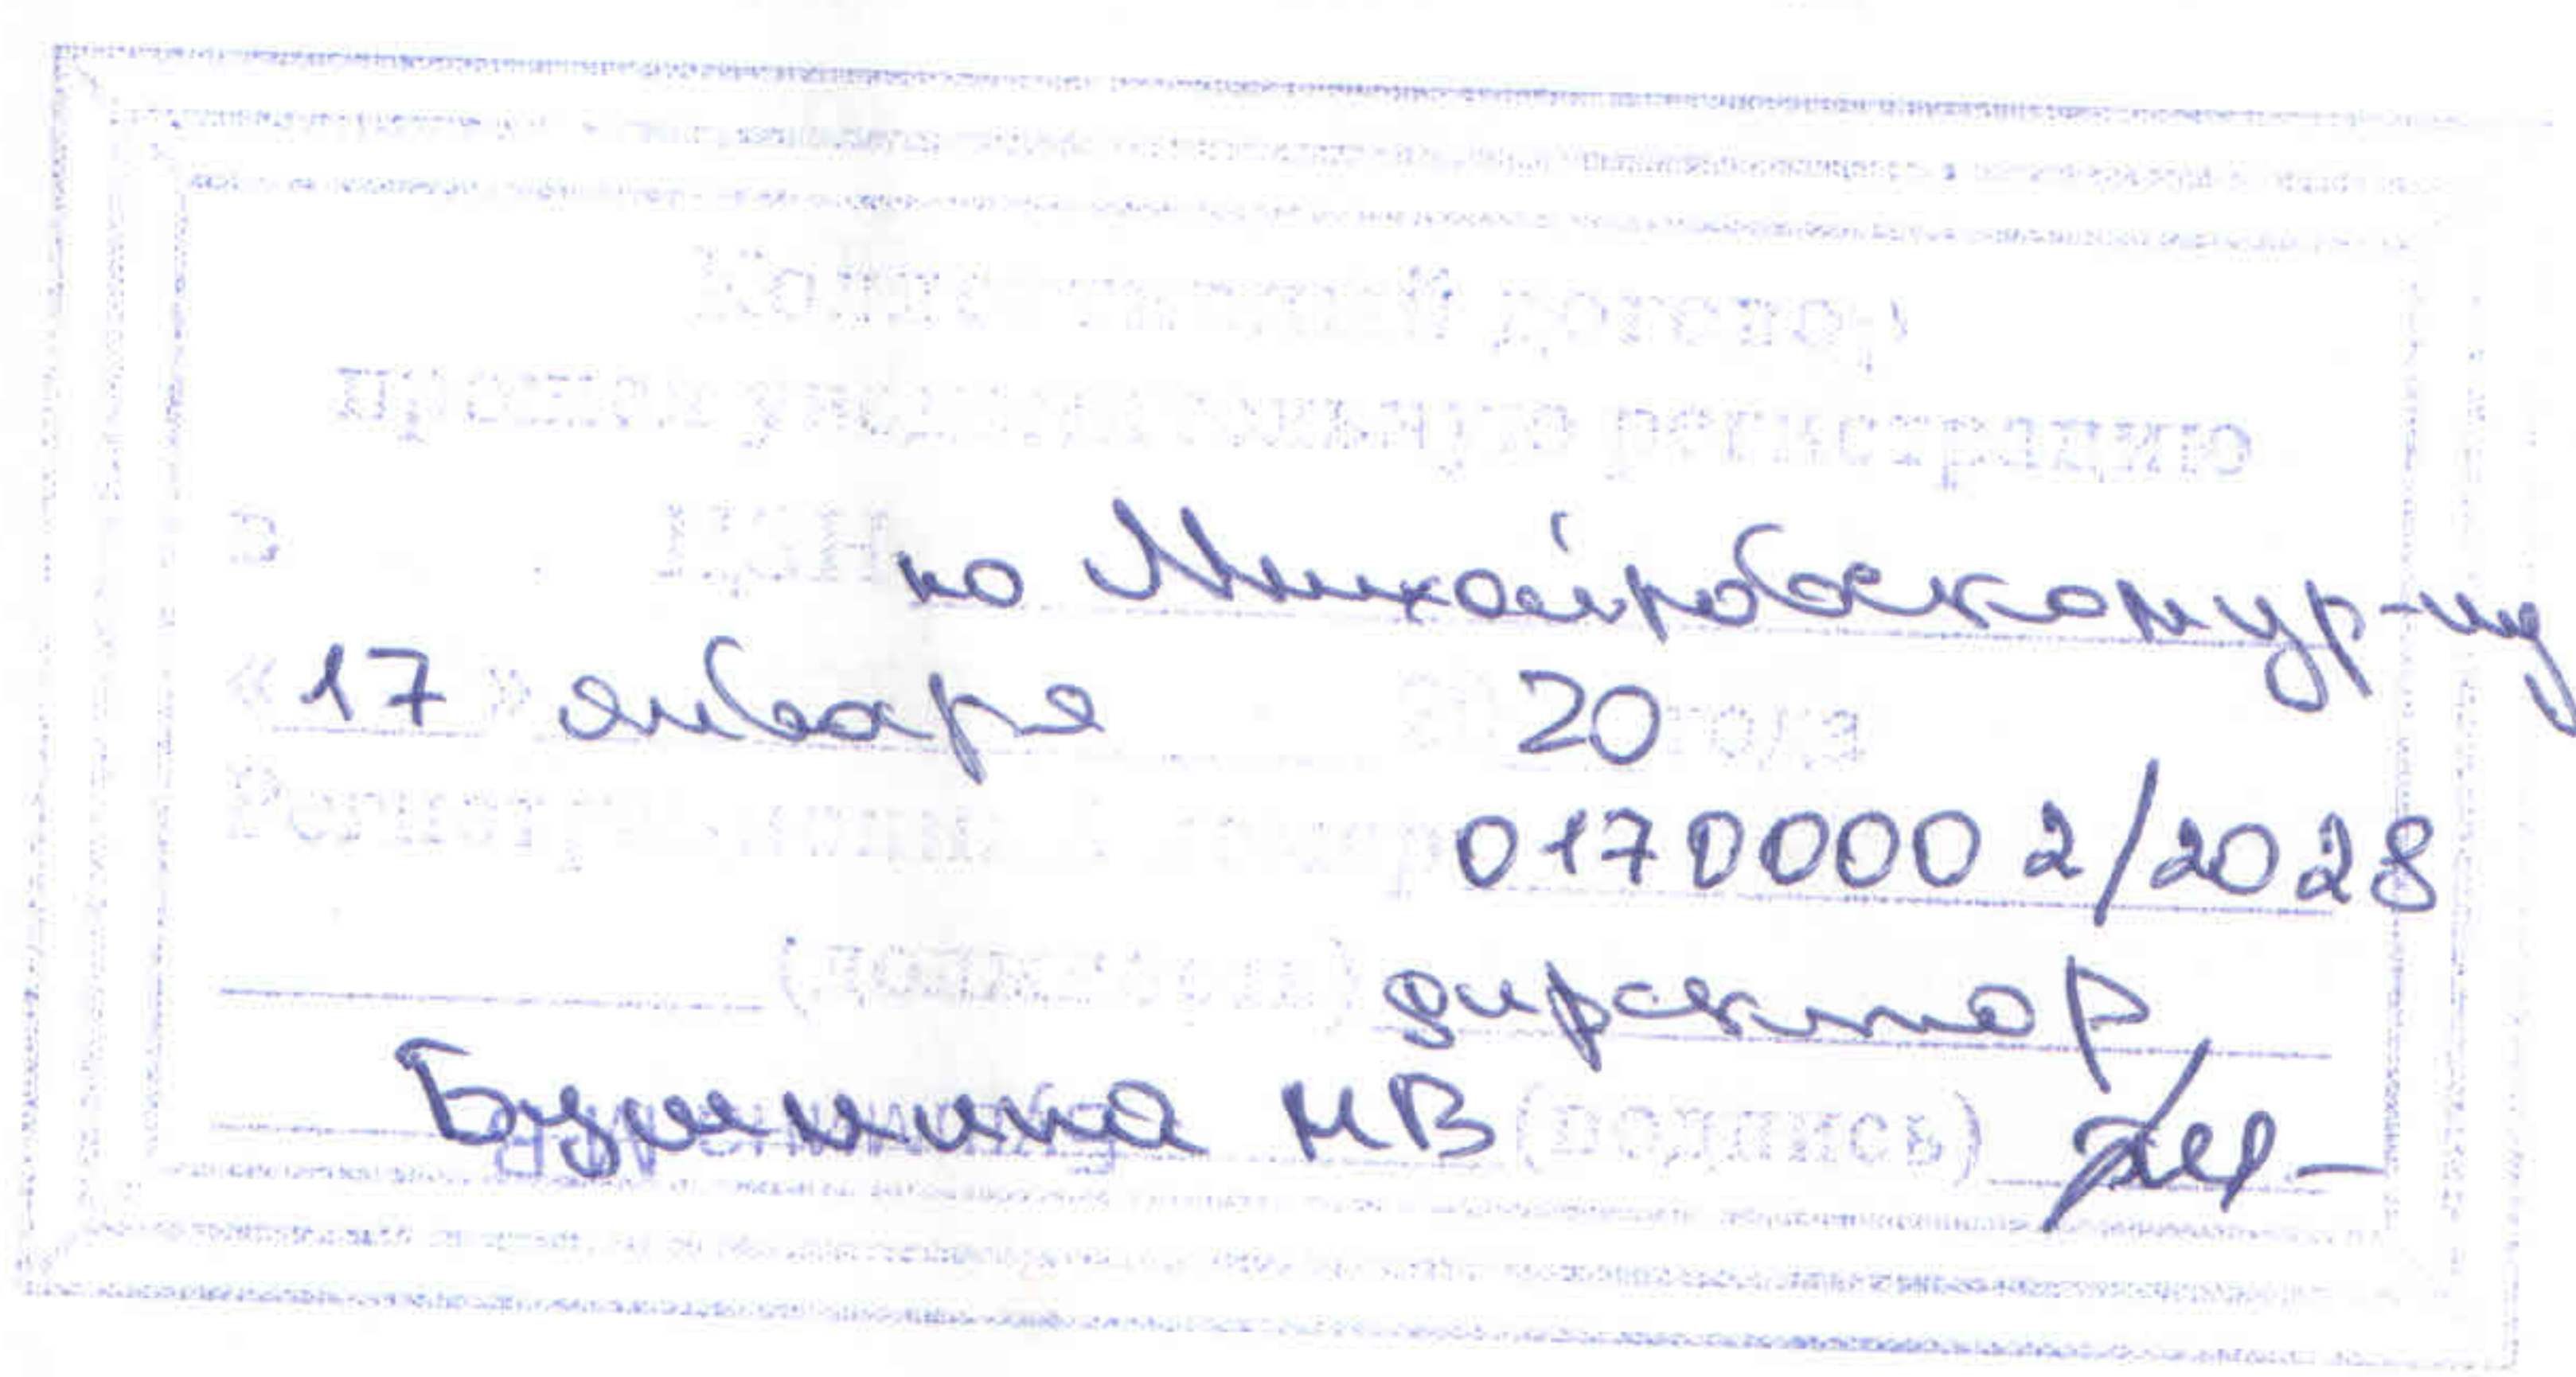 Коллективный договор
прошел уведомительную регистрацию
в ЦЗН по Михайловскому р-ну
« 17 » января 20 года
Регистрационный номер 0170000 2/2028
(должность) директор
Бушмина МВ (подпись)